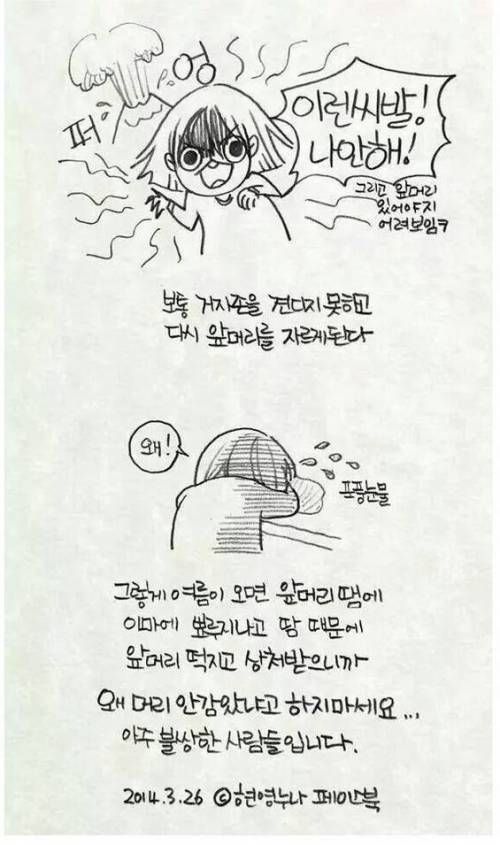 퍼
엉
이런씨발!
나안해!
그리고 앞머리
있어야지
어려보임ㅋ
보통 거지존을 견디지못하고
다시 앞머리를 자르게된다
왜!
폭풍눈물
그렇게 여름이 오면 앞머리땜에
이마에 뾰루지나고 땀 때문에
앞머리 떡지고 상처받으니까
왜 머리 안감았냐고 하지마세요...
아주 불쌍한 사람들입니다.
2014.3.26 ©현영누나 페이스북